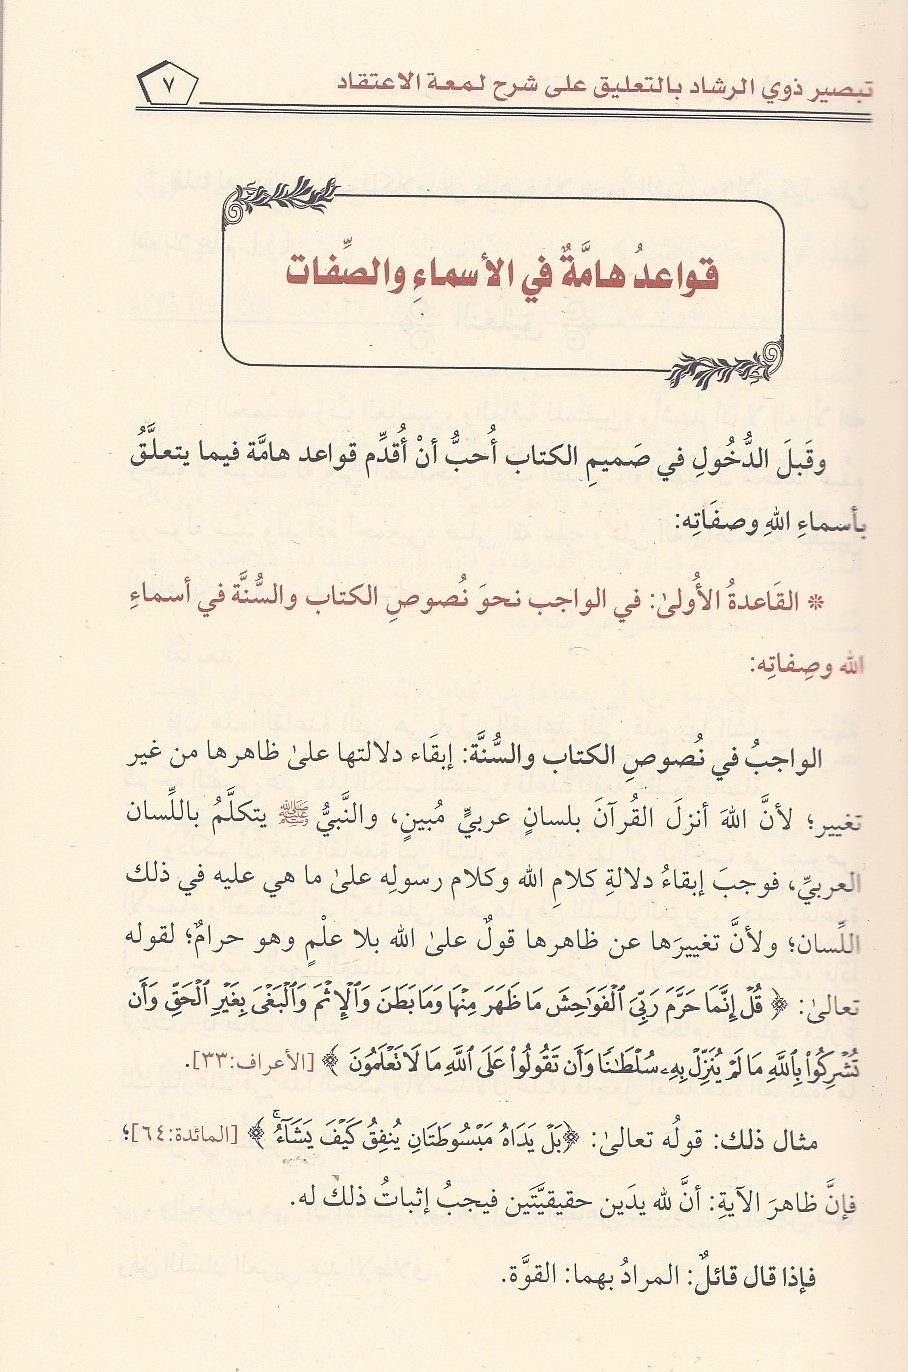 تبصير ذوي الرشاد بالتعليق على شرح لمعة الاعتقاد
٧
قواعدُ هامَّةٌ في الأسماءِ والصِّفات
وقَبلَ الدُّخُولِ في صَميمِ الكتاب أُحبُّ أنْ أُقدِّم قواعد هامَّة فيما يتعلَّقُ
بأسماءِ اللهِ وصفَاتِه:
* القَاعدةُ الأُولىٰ: في الواجب نحوَ نُصوصِ الكتاب والسُّنَّة في أسماءِ
الله وصِفاتِه:
الواجبُ في نُصوصِ الكتاب والسُّنَّة: إبقَاء دلالتها علىٰ ظاهرها من غير
تغيير؛ لأنَّ اللهَ أنزلَ القُرآنَ بلسانٍ عربيٍّ مُبينٍ، والنَّبيُّ ﷺ يتكلَّمُ باللِّسان
العربيِّ، فوجبَ إبقاءُ دلالةِ كلامِ الله وكلام رسولِه علىٰ ما هي عليه في ذلك
اللِّسان؛ ولأنَّ تغييرَها عن ظاهرها قولٌ علىٰ الله بلا علْمٍ وهو حرامٌ؛ لقوله
تعالىٰ: ﴿ قُلْ إِنَّمَا حَرَّمَ رَبِّيَ ٱلْفَوَٰحِشَ مَا ظَهَرَ مِنْهَا وَمَا بَطَنَ وَٱلْإِثْمَ وَٱلْبَغْىَ بِغَيْرِ ٱلْحَقِّ وَأَن
تُشْرِكُوا۟ بِٱللَّهِ مَا لَمْ يُنَزِّلْ بِهِۦ سُلْطَٰنًا وَأَن تَقُولُوا۟ عَلَى ٱللَّهِ مَا لَا تَعْلَمُونَ ﴾ [الأعراف:٣٣].
مثال ذلك: قولُه تعالىٰ: ﴿بَلْ يَدَاهُ مَبْسُوطَتَانِ يُنفِقُ كَيْفَ يَشَآءُ ۚ﴾ [المائدة:٦٤]؛
فإنَّ ظاهرَ الآيةِ: أنَّ لله يدَين حقيقيَّتَين فيجبُ إثباتُ ذلكَ له.
فإذا قال قائلٌ: المرادُ بهما: القوَّة.